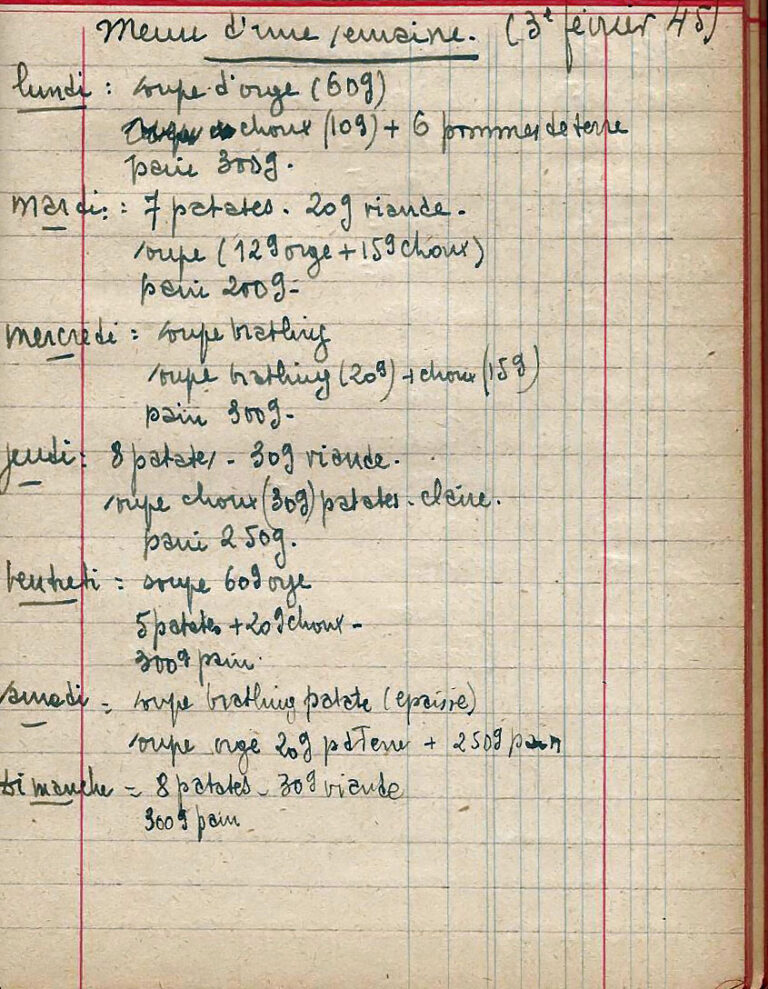 Menu d'une semaine. (3e février 45)
lundi : soupe d'orge (60g)
choux (10g) + 6 pommes de terre
pain 300g.
mardi : 7 patates. 20g viande.
soupe (12g orge + 15g choux)
pain 200g-
mercredi : soupe brathing
soupe brathing (20g) + choux (15g)
pain 300g-
jeudi : 8 patates - 30g viande.
soupe choux (30g) patates. claire.
pain 250g.
ventreti = soupe 60g orge
5 patates + 20g choux -
300g pain.
samedi = soupe brathing patate (epaisse)
soupe orge 20g pdTerre + 250g pain
dimanche = 8 patates - 30g viande
300g pain